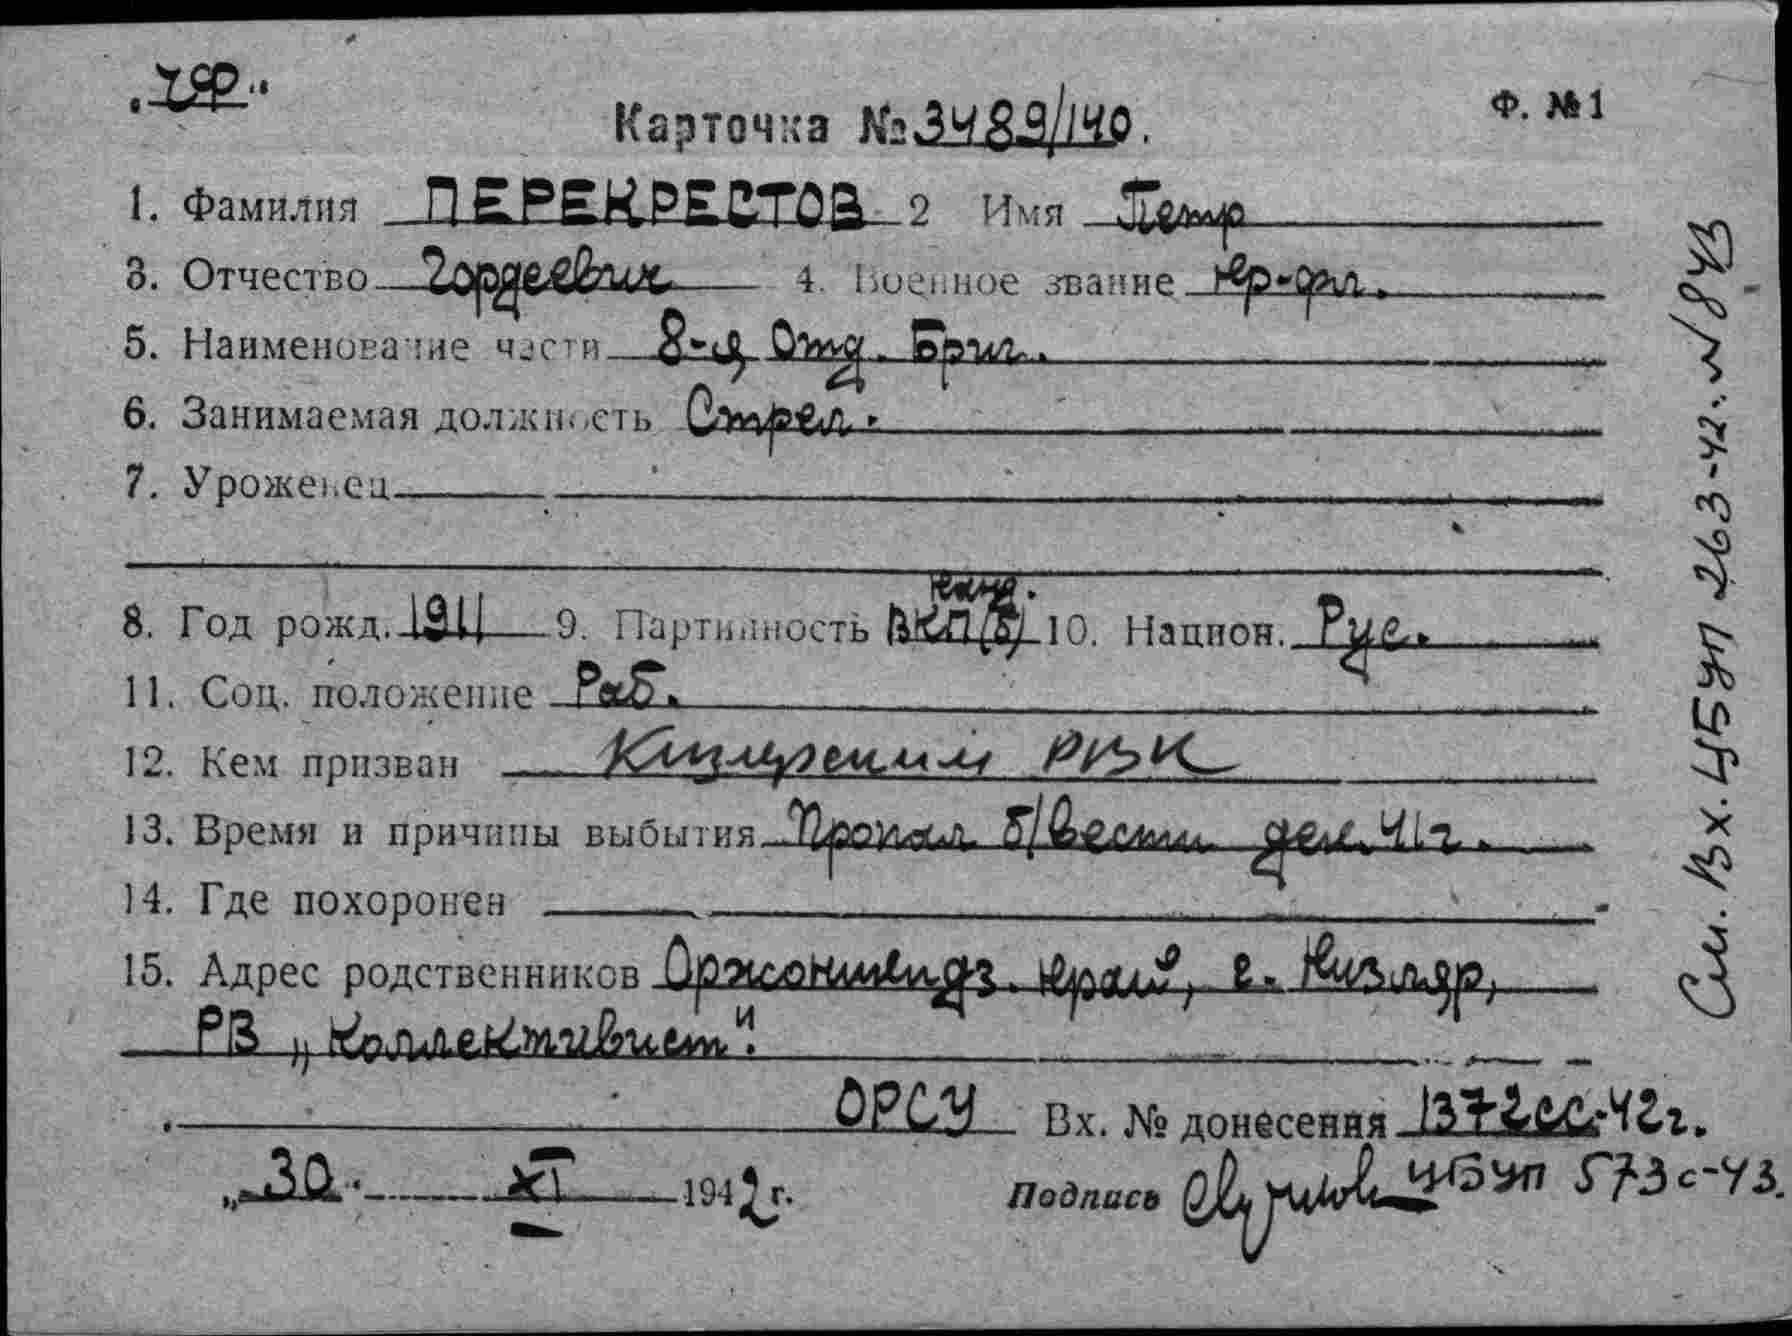 Ф. №1
Карточка №3489/140.
1. Фамилия ПЕРЕКРЕСТОВ 2 Имя Петр
3. Отчество Гордеевич 4. Военное звание кр-ец
5. Наименование части 8-я Отд. Бриг.
6. Занимаемая должность Стрел.
7. Уроженец
8. Год рожд. 1911 9. Партийность канд. ВКП(б) 10. Национ. Рус.
11. Соц. положение Раб.
12. Кем призван Кизлярским РВК
13. Время и причины выбытия Пропал б/вести дек. 41г.
14. Где похоронен
15. Адрес родственников Орджоникидз. край, г. Кизляр,
РВ „Коллективист".
ОРСУ Вх. № донесения 1372сс-42г.
„30" XI 1942г. Подпись ЦБУП 573с-43.
См. Вх. ЦБУП 263-42.